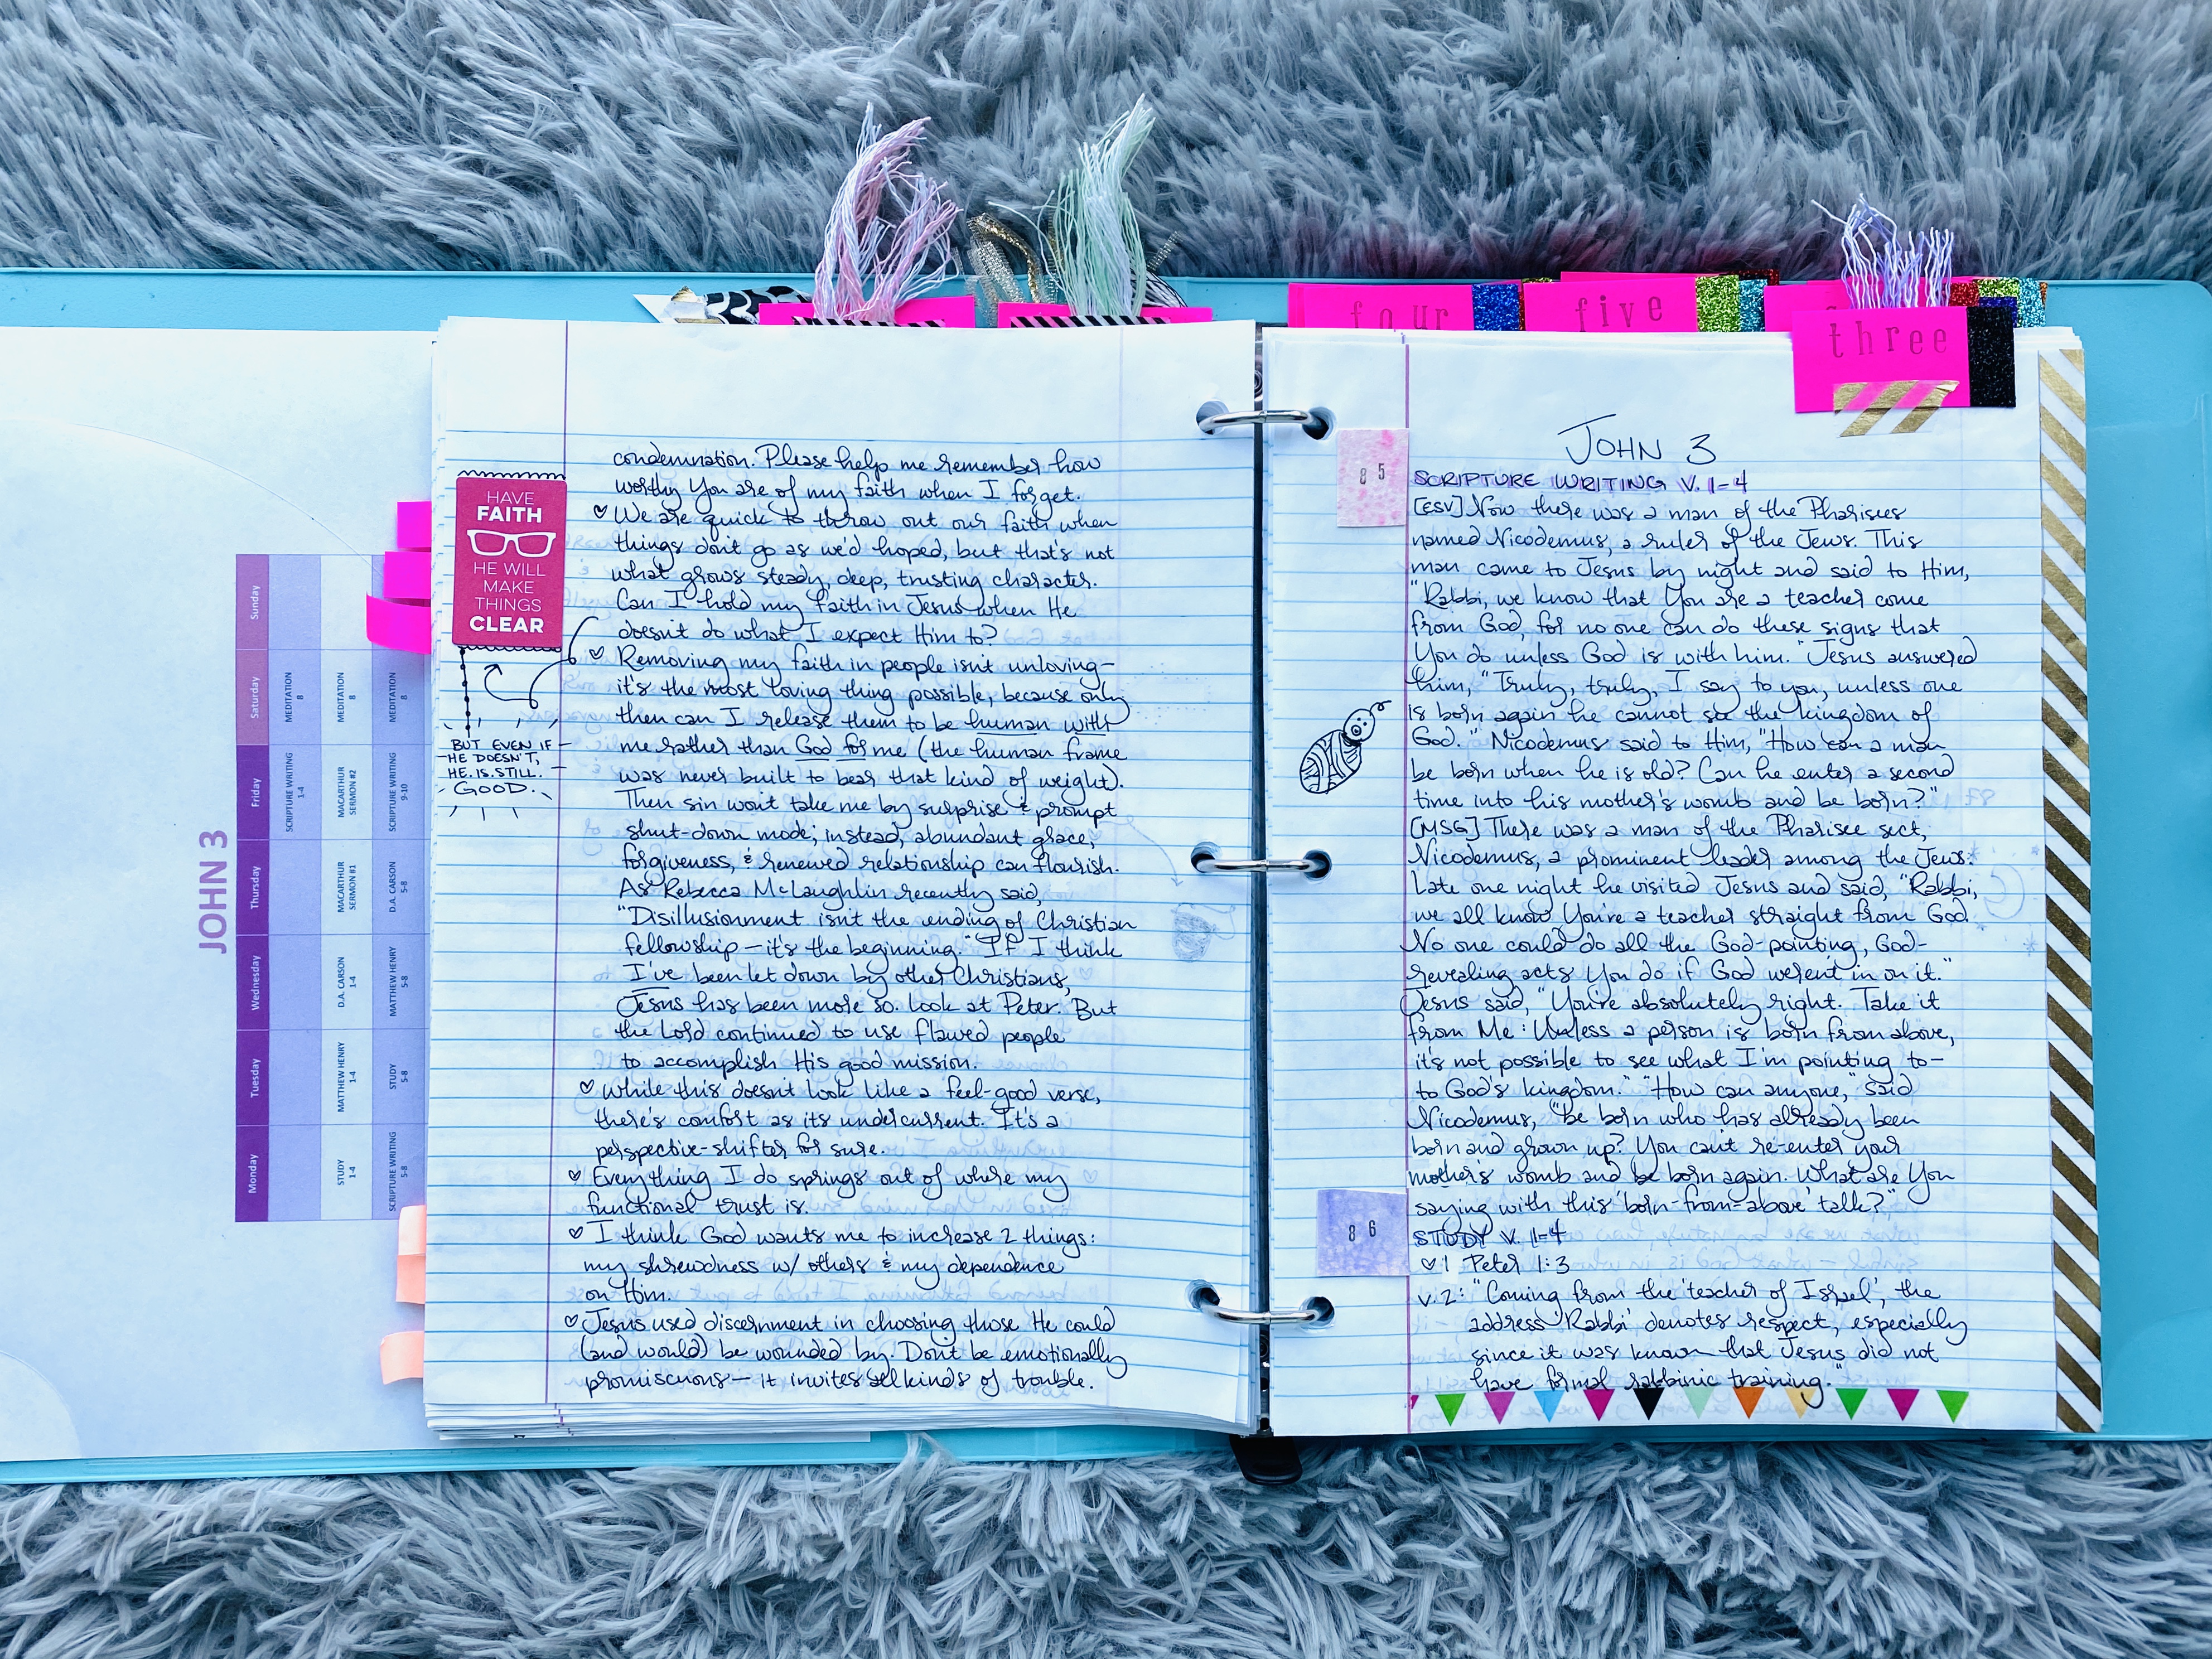 JOHN 3
Monday
Tuesday
Wednesday
Thursday
Friday
Saturday
Sunday
SCRIPTURE WRITING
1-4
MEDITATION
8
STUDY
1-4
MATTHEW HENRY
1-4
D.A. CARSON
1-4
MACARTHUR
SERMON #1
MACARTHUR
SERMON #2
MEDITATION
8
SCRIPTURE WRITING
5-8
STUDY
5-8
MATTHEW HENRY
5-8
D.A. CARSON
5-8
SCRIPTURE WRITING
9-10
MEDITATION
8
HAVE
FAITH
HE WILL
MAKE
THINGS
CLEAR
BUT EVEN IF
HE DOESN'T,
HE. IS. STILL.
GOOD.
condemnation. Please help me remember how
worthy You are of my faith when I forget.
♡ We are quick to throw out our faith when
things don't go as we'd hoped, but that's not
what grows steady, deep, trusting character.
Can I hold my faith in Jesus when He
doesn't do what I expect Him to?
♡ Removing my faith in people isn't unloving—
it's the most loving thing possible, because only
then can I release them to be human with
me rather than God for me (the human frame
was never built to bear that kind of weight).
Then sin won't take me by surprise & prompt
shut-down mode; instead, abundant grace,
forgiveness, & renewed relationship can flourish.
As Rebecca McLaughlin recently said,
"Disillusionment isn't the ending of Christian
fellowship—it's the beginning." If I think
I've been let down by other Christians,
Jesus has been more so. Look at Peter. But
the Lord continued to use flawed people
to accomplish His good mission.
♡ While this doesn't look like a feel-good verse,
there's comfort as its undercurrent. It's a
perspective-shifter for sure.
♡ Everything I do springs out of where my
functional trust is.
♡ I think God wants me to increase 2 things:
my shrewdness w/ others & my dependence
on Him.
♡ Jesus used discernment in choosing those He could
(and would) be wounded by. Don't be emotionally
promiscuous—it invites all kinds of trouble.
four
five
three
85
JOHN 3
SCRIPTURE WRITING V. 1-4
[ESV] Now there was a man of the Pharisees
named Nicodemus, a ruler of the Jews. This
man came to Jesus by night and said to Him,
"Rabbi, we know that You are a teacher come
from God, for no one can do these signs that
You do unless God is with him." Jesus answered
him, "Truly, truly, I say to you, unless one
is born again he cannot see the kingdom of
God." Nicodemus said to Him, "How can a man
be born when he is old? Can he enter a second
time into his mother's womb and be born?"
[MSG] There was a man of the Pharisee sect,
Nicodemus, a prominent leader among the Jews.
Late one night he visited Jesus and said, "Rabbi,
we all know You're a teacher straight from God.
No one could do all the God-pointing, God-
revealing acts You do if God weren't in on it."
Jesus said, "You're absolutely right. Take it
from Me: Unless a person is born from above,
it's not possible to see what I'm pointing to—
to God's kingdom." "How can anyone," said
Nicodemus, "be born who has already been
born and grown up? You can't re-enter your
mother's womb and be born again. What are You
saying with this 'born-from-above' talk?"
86
STUDY V. 1-4
♡ 1 Peter 1:3
v.2: "Coming from the 'teacher of Israel', the
address 'Rabbi' denotes respect, especially
since it was known that Jesus did not
have formal rabbinic training."